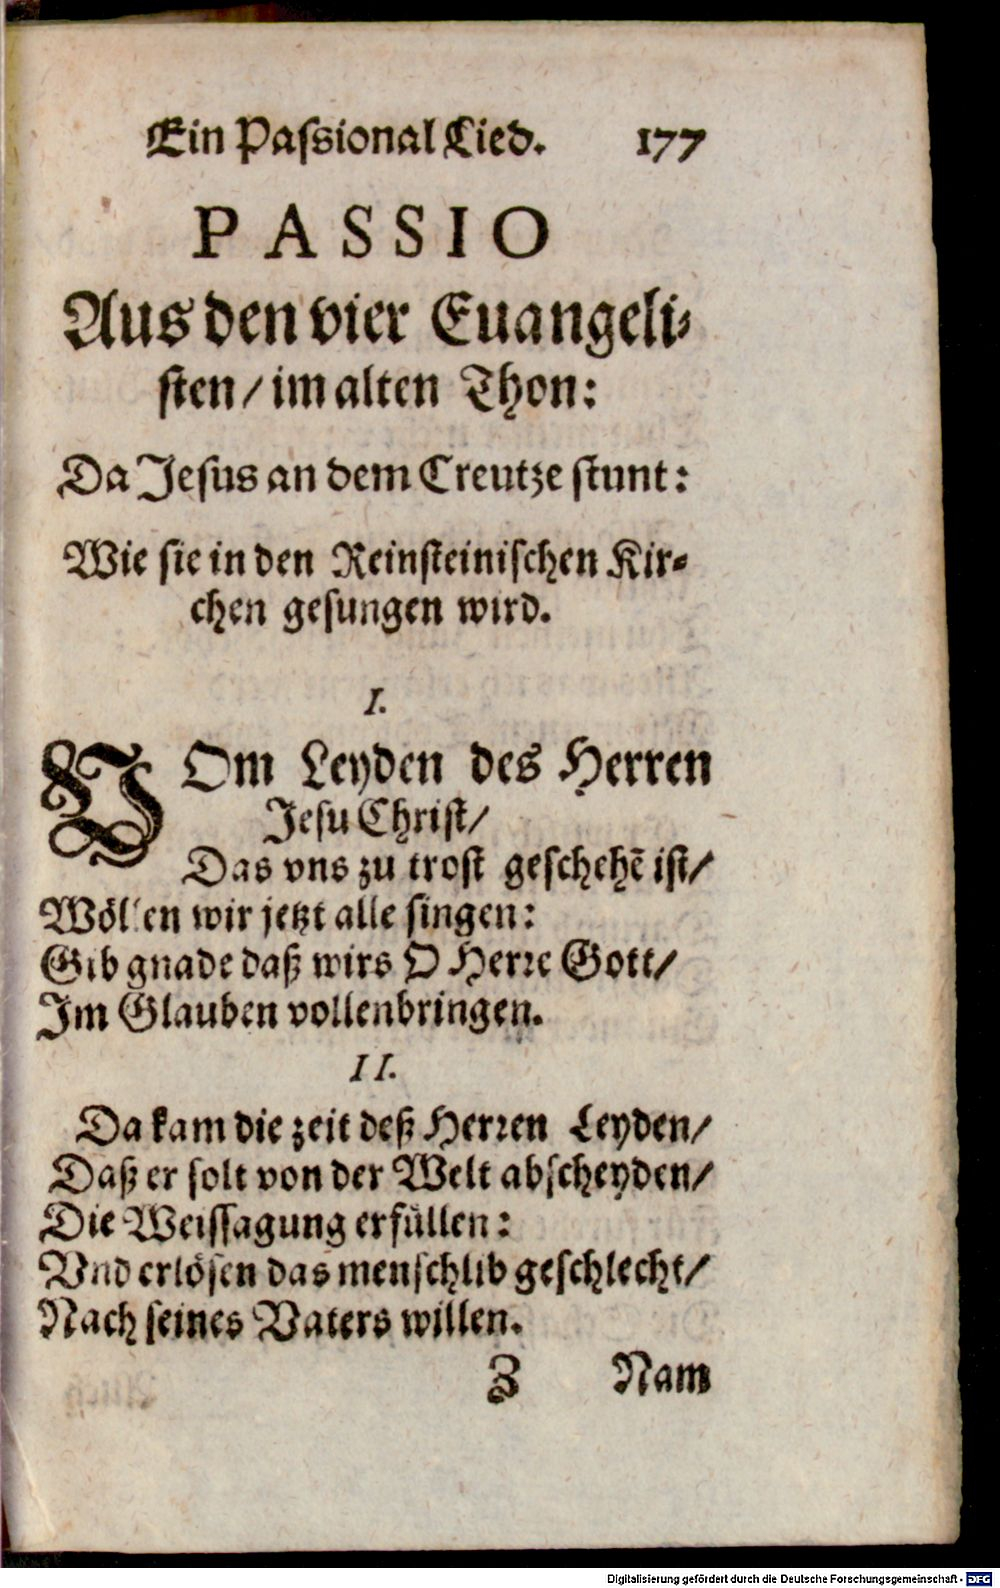 Ein Passional Lied. 177
PASSIO
Aus den vier Euangeli-
sten / im alten Thon:
Da Jesus an dem Creutze stunt:
Wie sie in den Reinsteinischen Kir-
chen gesungen wird.
I.
VOm Leyden des Herren
Jesu Christ/
Das vns zu trost geschehē ist/
Wöllen wir jetzt alle singen:
Gib gnade daß wirs O Herre Gott/
Im Glauben vollenbringen.
II.
Da kam die zeit deß Herren Leyden/
Daß er solt von der Welt abscheyden/
Die Weissagung erfüllen:
Vnd erlösen das menschlib geschlecht/
Nach seines Vaters willen.
Z Nam
Digitalisierung gefördert durch die Deutsche Forschungsgemeinschaft - DFG